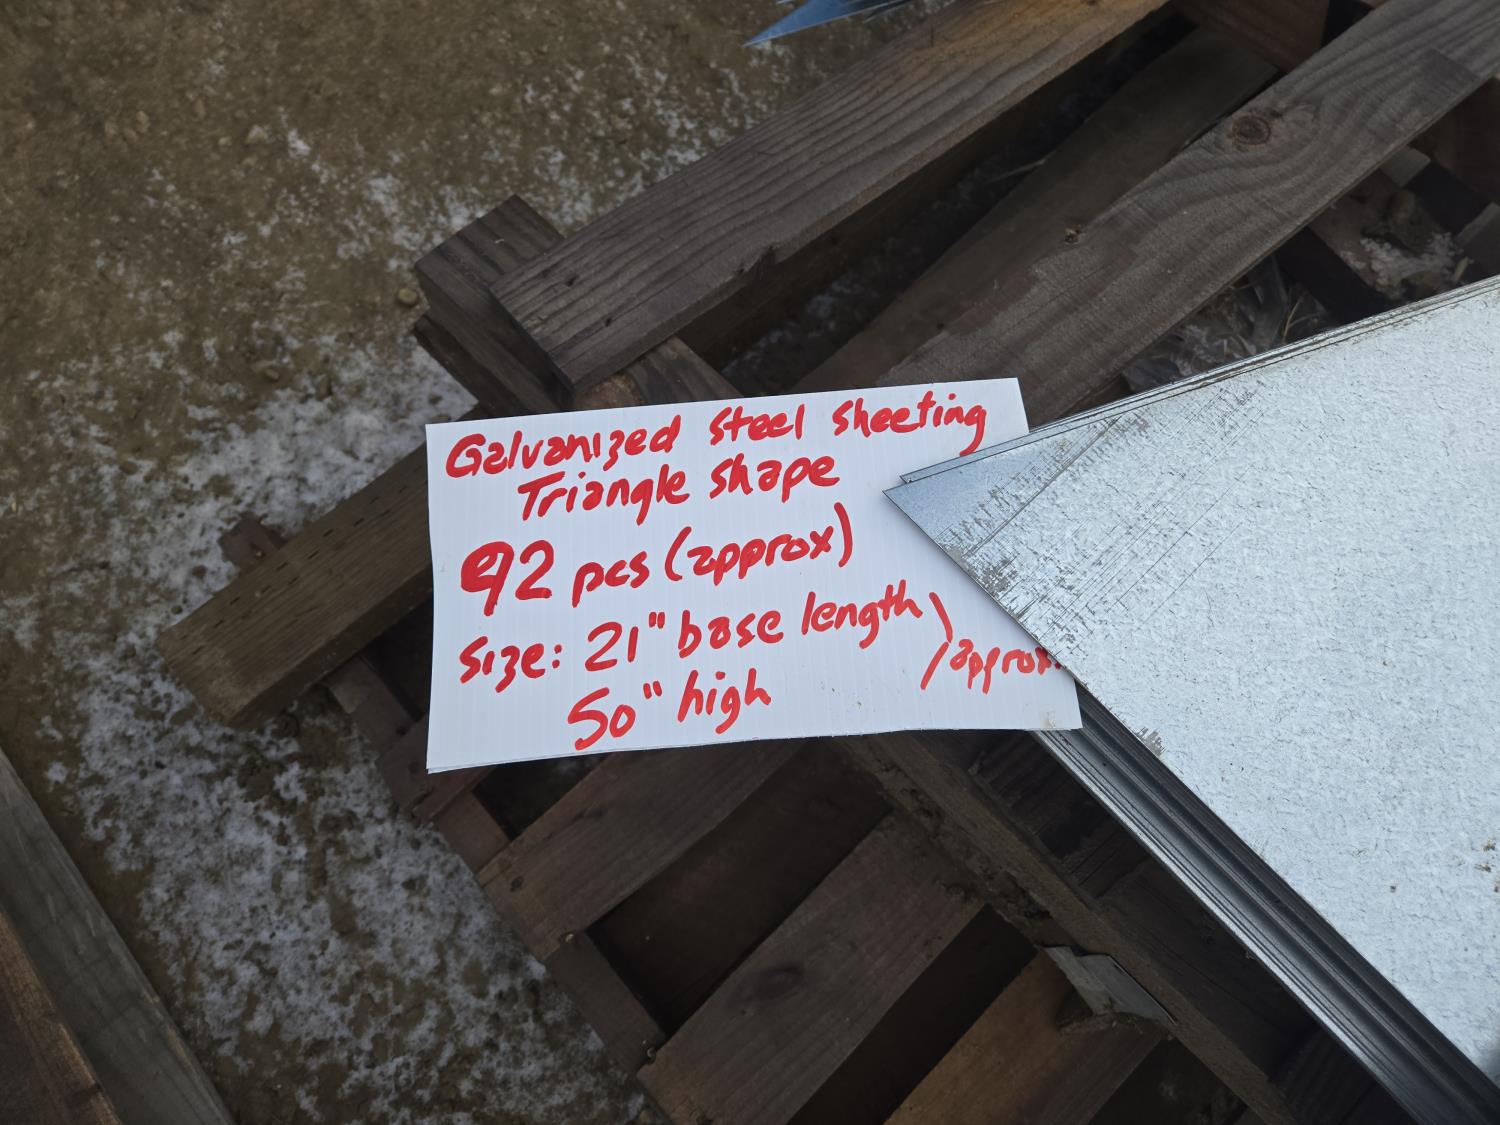 Galvanized steel sheeting
Triangle shape
92 pcs (approx)
size: 21" base length
50" high
) approx.